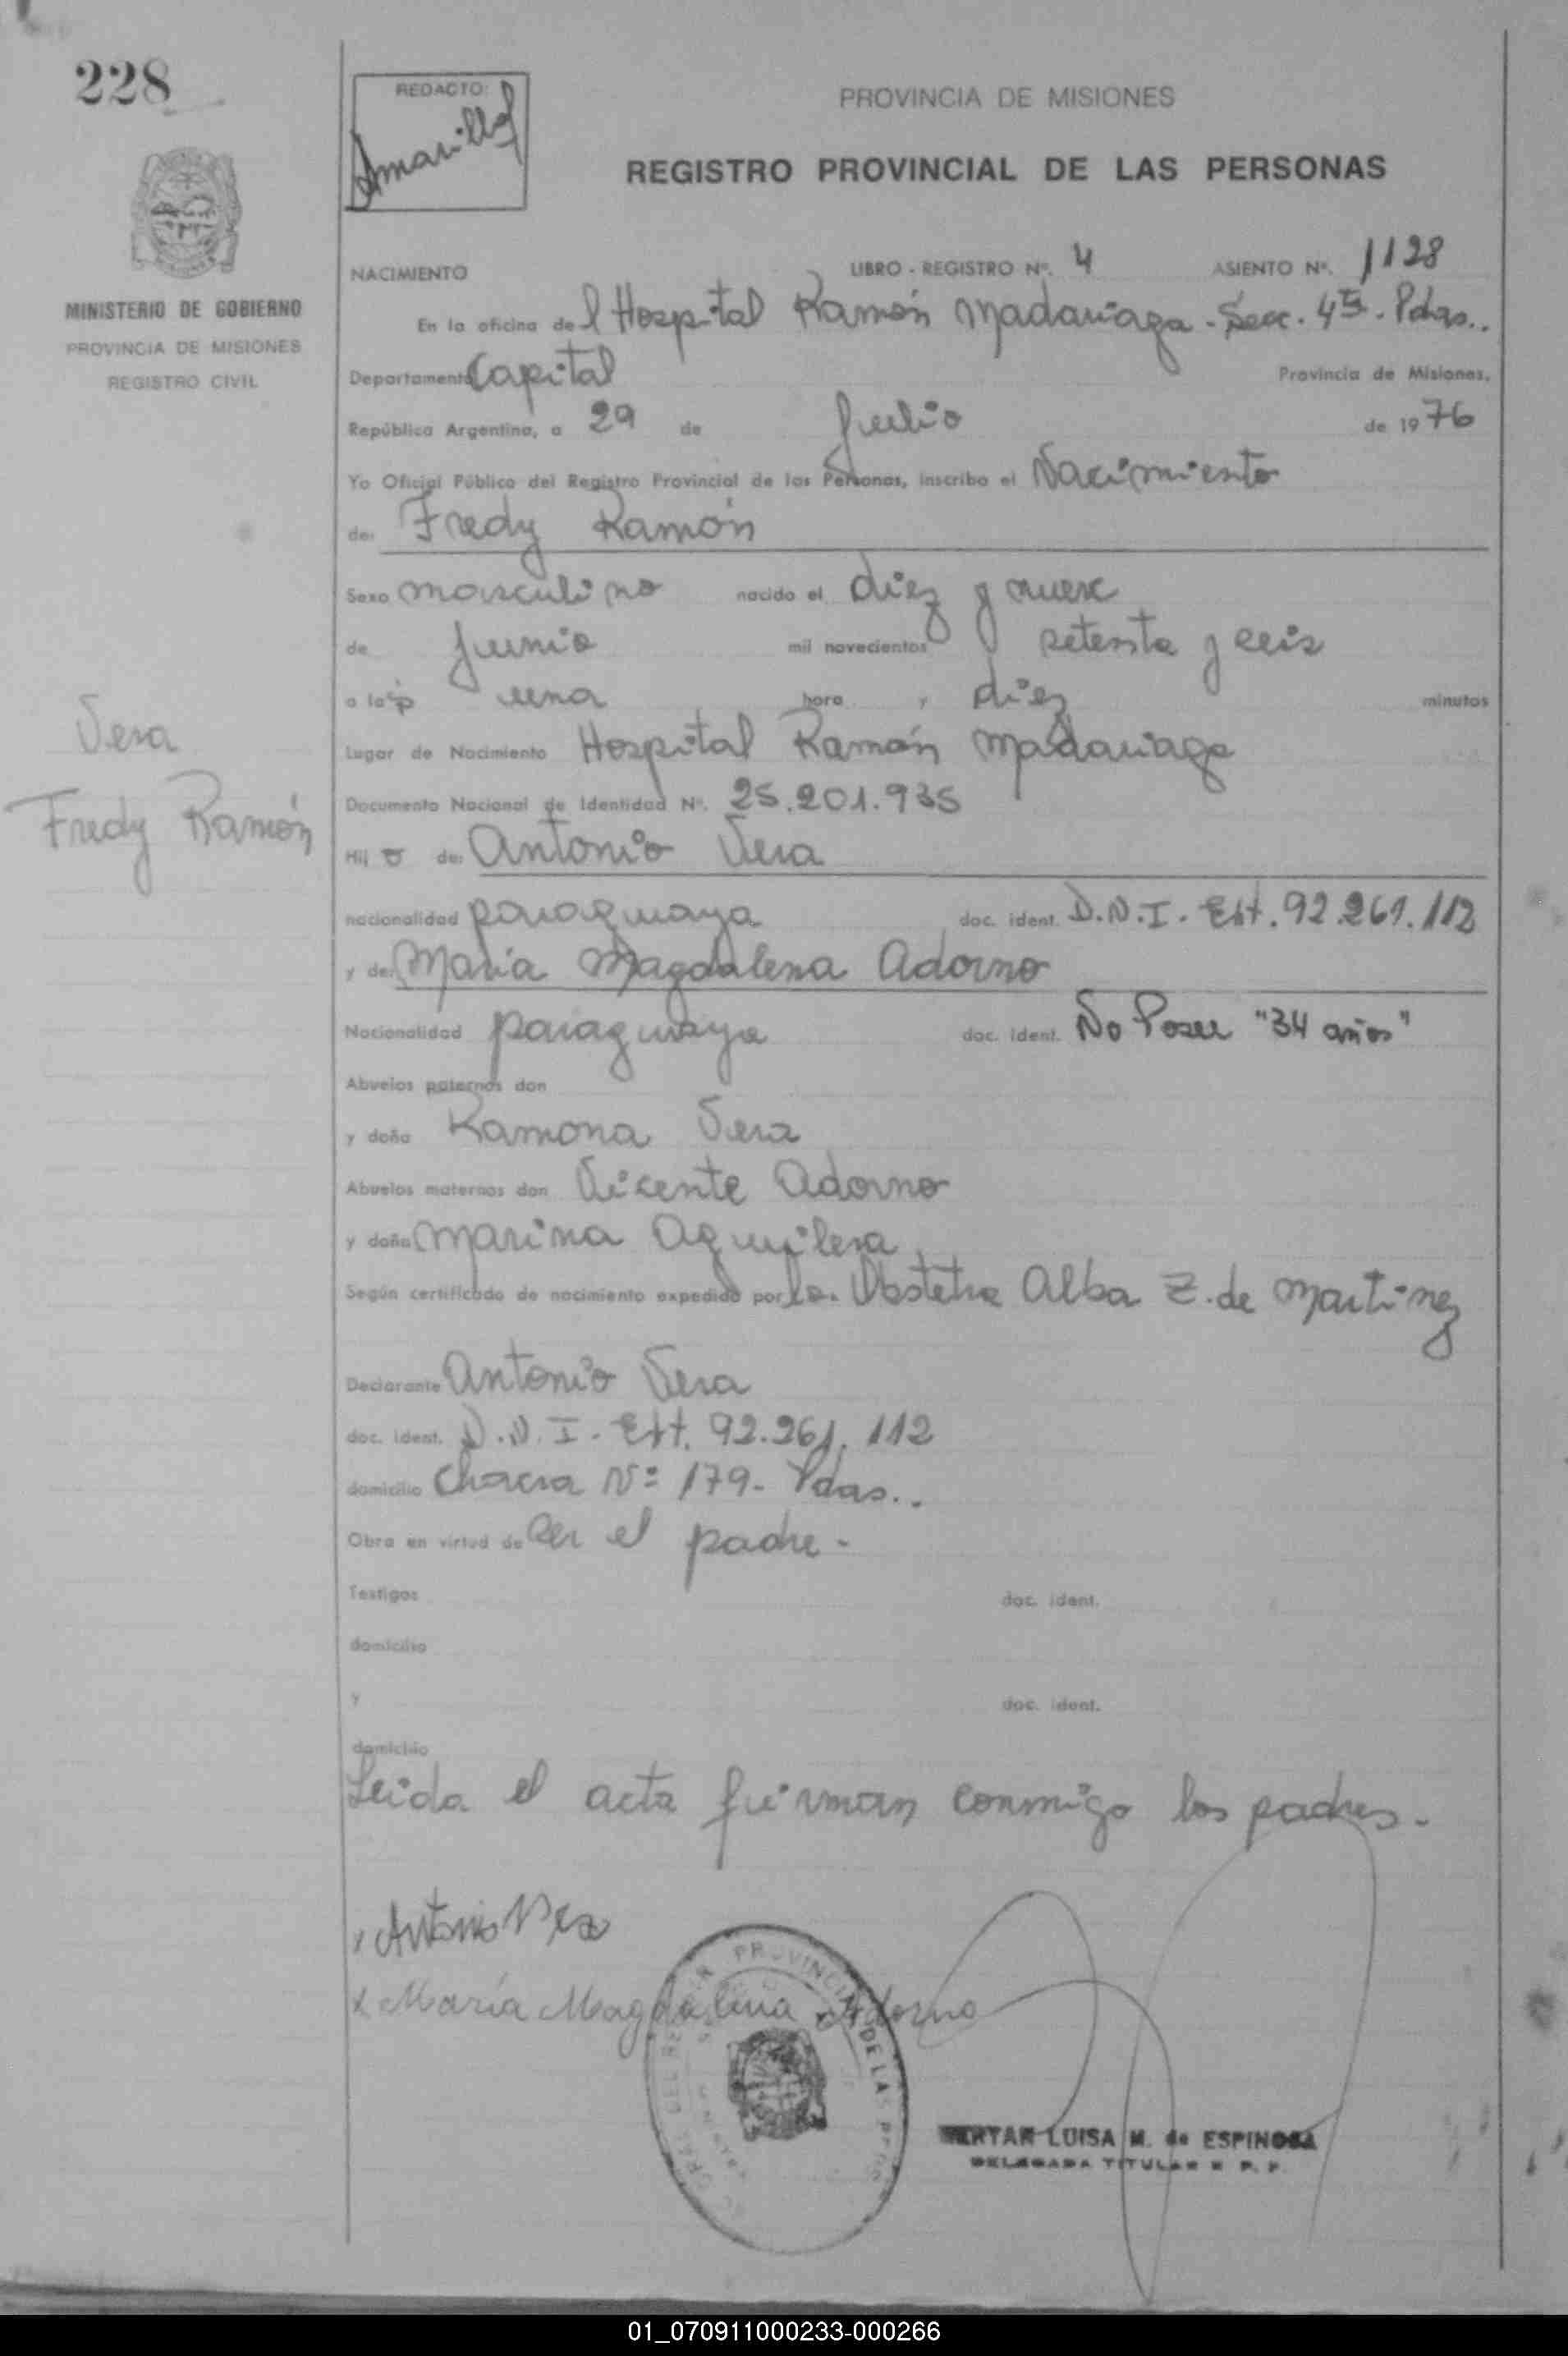 228
REDACTO:
Amarilla
PROVINCIA DE MISIONES
REGISTRO PROVINCIAL DE LAS PERSONAS
MINISTERIO DE GOBIERNO
PROVINCIA DE MISIONES
REGISTRO CIVIL
NACIMIENTO LIBRO - REGISTRO Nº. 4 ASIENTO Nº. 1128
En la oficina del Hospital Ramón Madariaga - Secc. 4ta. Pdas..
Departamento Capital Provincia de Misiones,
República Argentina, a 29 de Julio de 1976
Yo Oficial Público del Registro Provincial de las Personas, inscribo el Nacimiento
de: Fredy Ramón
Sexo masculino nacido el diez y nueve
de Junio mil novecientos setenta y seis
a la una hora y diez minutos
Lugar de Nacimiento Hospital Ramón Madariaga
Vera
Fredy Ramón
Documento Nacional de Identidad Nº. 25.201.935
Hijo de: Antonio Vera
nacionalidad paraguaya doc. ident. D.N.I. Ext. 92.261.112
y de: María Magdalena Adorno
Nacionalidad paraguaya doc. ident. No Posee "34 años"
Abuelos paternos don
y doña Ramona Vera
Abuelos maternos don Vicente Adorno
y doña Marina Aguilera
Según certificado de nacimiento expedido por la. Obstetra Alba Z. de Martinez
Declarante Antonio Vera
doc. ident. D.N.I. Ext. 92.261.112
domicilio Chacra Nº 179- Pdas..
Obra en virtud de Ser el padre -
Testigos doc. ident.
domicilio
y doc. ident.
domicilio
Leida el acta firman conmigo los padres.-
x Antonio Vera
x María Magdalena Adorno
PROVINCIAL DE LAS
LUISA M. de ESPINOSA
DELEGADA TITULAR R. P. P.
01_070911000233-000266